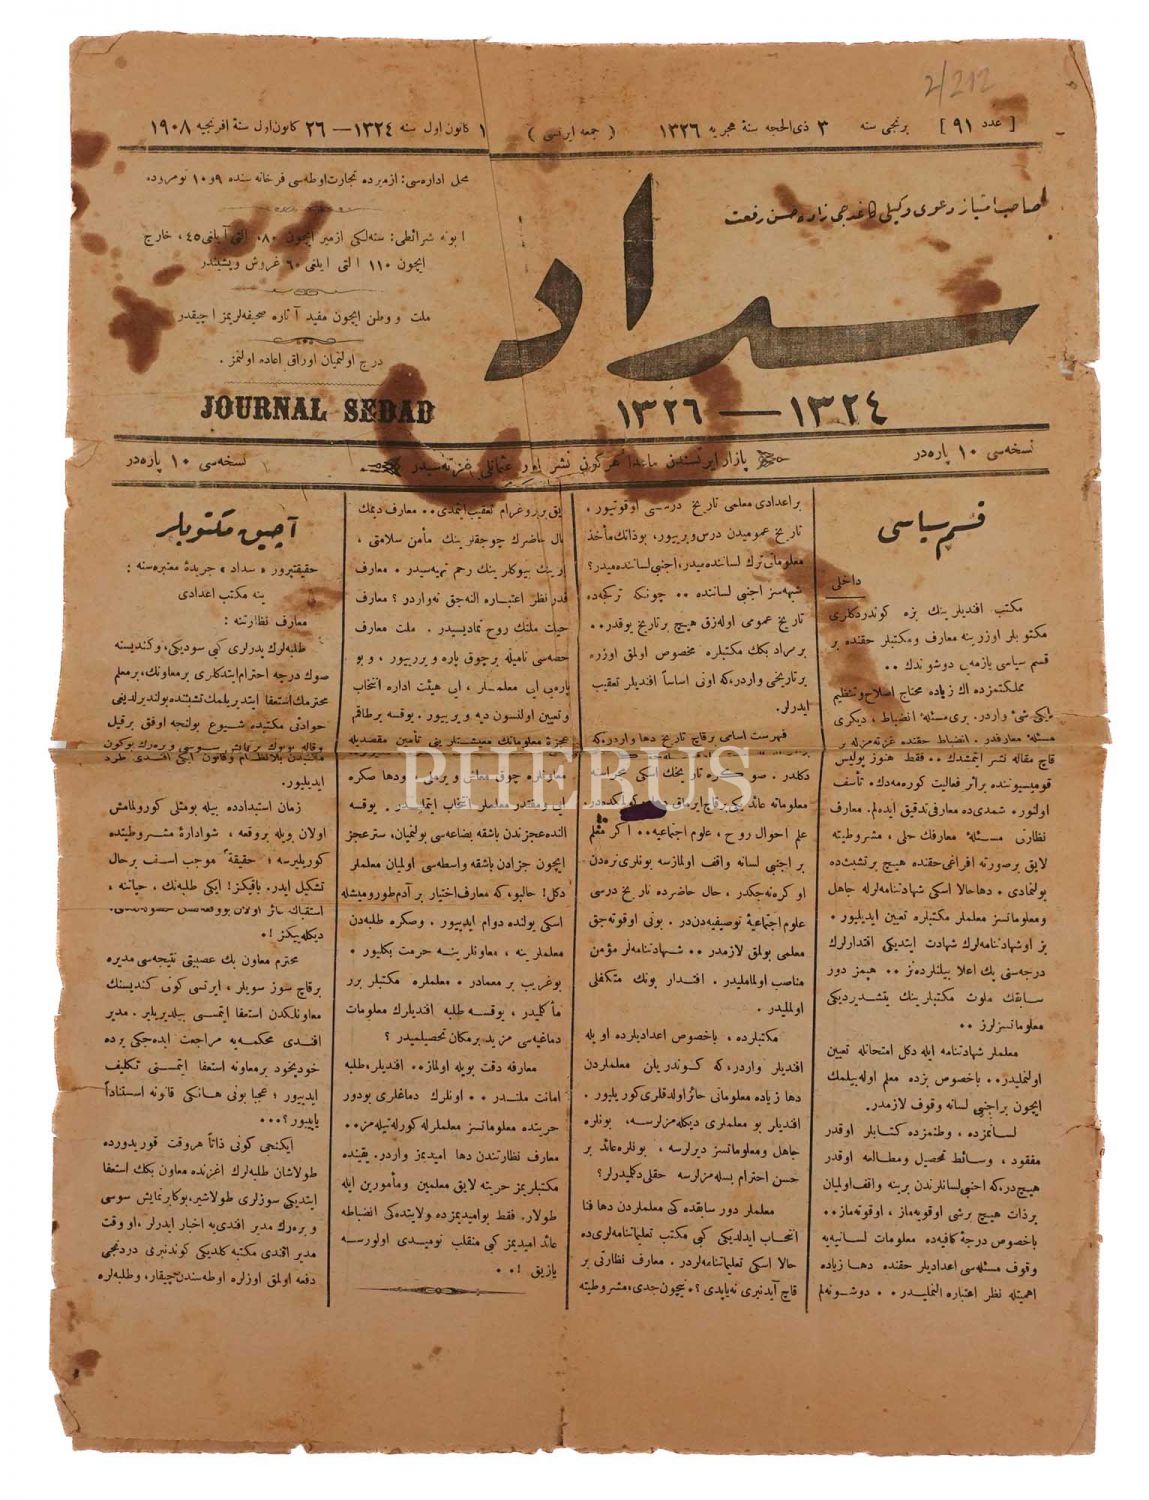 2/212
[ عدد ٩١ ] برنجی سنه ٣ ذی الحجه سنهٔ هجریه ١٣٢٦ ( جمعه ایرتسی ) ١ کانون اول سنه ١٣٢٤ — ٢٦ کانون اول سنهٔ افرنجیه ١٩٠٨
صاحب امتیاز دعوی وکیلی کاغدجی زاده حسن رفعت
سداد
١٣٢٤ — ١٣٢٦
محل اداره سی: ازمیرده تجارت اوطه سی قرخانه سنده ٩ و ١٠ نومروده
ابونه شرائطی: سنه لکی ازمیر ایچون ٨٠ التی آیلغی ٤٥ ، خارج
ایچون ١١٠ التی ایلغی ٦٠ غروش
ملت و وطن ایچون مفید آثاره صحیفه لریمز آچیقدر
درج اولنمیان اوراق اعاده اولنمز .
JOURNAL SEDAD
نسخه سی ١٠ پاره در
بازار ایرتسندن ماعدا هرکون نشر اولور عثمانلی غزته سیدر
نسخه سی ١٠ پاره در
قسم سیاسی
داخلی
مکتب افندیلرینك بزه کوندردکلری
مکتوبلر اوزرینه معارف ومکتبلر حقنده بر
قسم سیاسی یازمه یی دوشوندك ..
مملکتمزده اك زیاده محتاج اصلاح وتنظیم
ایکی شئ واردر. بری مسئلهٔ انضباط ، دیکری
مسئلهٔ معارفدر. انضباط حقنده غزته مزله بر
قاچ مقاله نشر ایتمشدك .. فقط هنوز پولیس
قومیسیوننده براثر فعالیت کوره مه دك. تأسف
اولنور. شمدی ده معارفی تدقیق ایده لم. معارف
نظارتی مسئلهٔ معارفك حلی ، مشروطیته
لایق بر صورته افراغی حقنده هیچ بر تشبثده
بولنمادی . دها حالا اسکی شهادتنامه لرله جاهل
ومعلوماتسز معلملر مکتبلره تعیین ایدیلیور .
بز او شهادتنامه لرك شهادت ایتدیکی اقتدارلرك
درجه سنی پك اعلا بیلنلردنز .. هپمز دور
سابقك ملوث مکتبلرینك یتشدیردیکی
معلوماتسزلرز ..
معلملر شهادتنامه ایله دکل امتحانله تعیین
اولنملیدر.. باخصوص بزده معلم اوله بیلمك
ایچون بر اجنبی لسانه وقوف لازمدر.
لسانمزده ، وطنمزده کتابلر اوقدر
مفقود ، وسائط تحصیل ومطالعه اوقدر
هیچ در، که اجنبی لسانلرندن برینه واقف اولمیان
بر ذات هیچ برشی اوقویه ماز ، اوقوته ماز ..
باخصوص درجهٔ کافیه ده معلومات لسانیه یه
وقوف مسئله سی اعدادیلر حقنده دها زیاده
اهمیتله نظر اعتباره النملیدر .. دوشونه لم
بر اعدادی معلمی تاریخ درسی اوقوتیور ،
تاریخ عمومیدن درس ویریور، بو ذاتك مأخذ
معلوماتی ترك لساننده میدر، اجنبی لساننده میدر؟
شبهه سز اجنبی لساننده .. چونکه ترکجه ده
تاریخ عمومی اوله رق هیچ بر تاریخ یوقدر..
بر مراد بكك مکتبلره مخصوص اولمق اوزره
بر تاریخی واردر، که اونی اساساً افندیلر تعقیب
ایدرلر.
فهرست اسامی بر قاچ تاریخ دها واردر، که
دکلدر. صوکره تاریخك اسکی
معلوماته عائد
علم احوال روح ، علوم اجتماعیه .. اکر معلم
بر اجنبی لسانه واقف اولمازسه بونلری نره دن
اوکره نه جکدر ، حال حاضرده تاریخ درسی
علوم اجتماعیهٔ توصیفیه دن در . بونی اوقوته جق
معلمی بولمق لازمدر .. شهادتنامه لر مؤمن
مناصب اولمامالیدر . اقتدار بونك متکفلی
اولملیدر.
مکتبلرده ، باخصوص اعدادیلرده اویله
افندیلر واردر، که کوندریلن معلملردن
دها زیاده معلوماتی حائز اولدقلری کوریلیور .
افندیلر بو معلملری دیکله مزلرسه ، بونلره
جاهل ومعلوماتسز دیرلرسه ، بونلره عائد بر
حسن احترام بسله مزلرسه حقلی دکلمیدرلر؟
معلملر دور سابقده کی معلملردن دها فنا
انتخاب ایدلدیکی کبی مکتب تعلیماتنامه لری ده
حالا اسکی تعلیماتنامه لردر . معارف نظارتی بر
قاچ آیدنبری نه یاپدی ؟ . نیچون جدی، مشروطیته
لایق بر پروغرام تعقیب ایتمدی .. معارف دیمك
حال حاضرك چوجقلرینك مأمن سلامتی ،
رحم تربیه سیدر . معارف
قدر نظر اعتباره النه جق نه واردر ؟ معارف
حیات ملتك روح تمادیسیدر . ملت معارف
حصه سی نامیله بر چوق پاره ویریور ، وبو
پاره یی ایی معلملر ، ایی هیئت اداره انتخاب
وتعیین اولنسون دیه ویریور. یوقسه بر طاقم
عجزهٔ معلوماتك معیشتلرینی تأمین مقصدیله
معاونلره چوق معاش ویرملی . ودها صکره
ایی ومقتدر معلملر انتخاب ایتملیدر. یوقسه
النده عجزندن باشقه بضاعه سی بولنمیان، ستر عجز
ایچون جزادن باشقه واسطه سی اولمیان معلملر
دکل! حالبو، که معارف اختیار بر آدم طوریمیشله
اسکی یولنده دوام ایدییور . وصکره طلبه دن
معلملرینه ، معاونلرینه حرمت بکلیور .
بو غریب بر معمادر . معلملره مکتبلر برر
مأکلیدر ، یوقسه طلبه افندیلرك معلومات
دماغیه سی مزید بر مکان تحصیلمیدر ؟
معارفه دقت بویله اولماز.. افندیلر، طلبه
امانت ملتدر .. اونلرك دماغلری بو دور
حریتده معلوماتسز معلملرله کورله تیله مز..
معارف نظارتندن دها امیدیمز واردر. یقینده
مکتبلریمز حریته لایق معلمین ومأمورین ایله
طولار. فقط بو امیدیمزده ولایتده کی انضباطه
عائد امیدیمز کبی منقلب نومیدی اولورسه
یازیق ! ..
آچیق مکتوبلر
حقیقتپرور « سداد » جریدهٔ معتبره سنه :
ینه مکتب اعدادی
معارف نظارتنه :
طلبه لرك پدرلری کبی سودیکی، وکندیسنه
صوك درجه احترام ایتدکلری بر معاونك، بر معلم
محترمك استعفا ایتدیریلمك تشبثنده بولندیرلدیغی
حوادثی مکتبده شیوع بولنجه اوفق بر قیل
وقاله
ایدیلیور.
زمان استبدادده بیله بو مثلی کورولمامش
اولان ویله بر وقعه ، شو ادارهٔ مشروطیتده
کوریلیرسه ؛ حقیقةً موجب اسف بر حال
تشکیل ایدر. باقیکز! ایکی طلبه نك ، حیاتنه ،
دیکله ییکز !.
محترم معاون بك عصبیتی نتیجه سی مدیره
بر قاچ سوز سویلر ، ایرتسی کونی کندیسنك
معاونلکدن استعفا ایتمسی بیلدیریلیر. مدیر
افندی محکمه یه مراجعت ایده جکی یرده
خود بخود بر معاونه استعفا ایتمسنی تکلیف
ایدییور ؛ عجبا بونی هانکی قانونه استناداً
یاپییور ؟ ...
ایکنجی کونی ذاتاً هر وقت قوریدورده
طولاشان طلبه لرك اغزنده معاون بكك استعفا
ایتدیکی سوزلری طولاشیر، بوکا بر نمایش سوسی
ویره رك مدیر افندی یه اخبار ایدرلر، او وقت
مدیر افندی مکتبه کلدیکی کوندنبری دردنجی
دفعه اولمق اوزره اوطه سندن چیقار، وطلبه لره
PHEBUS